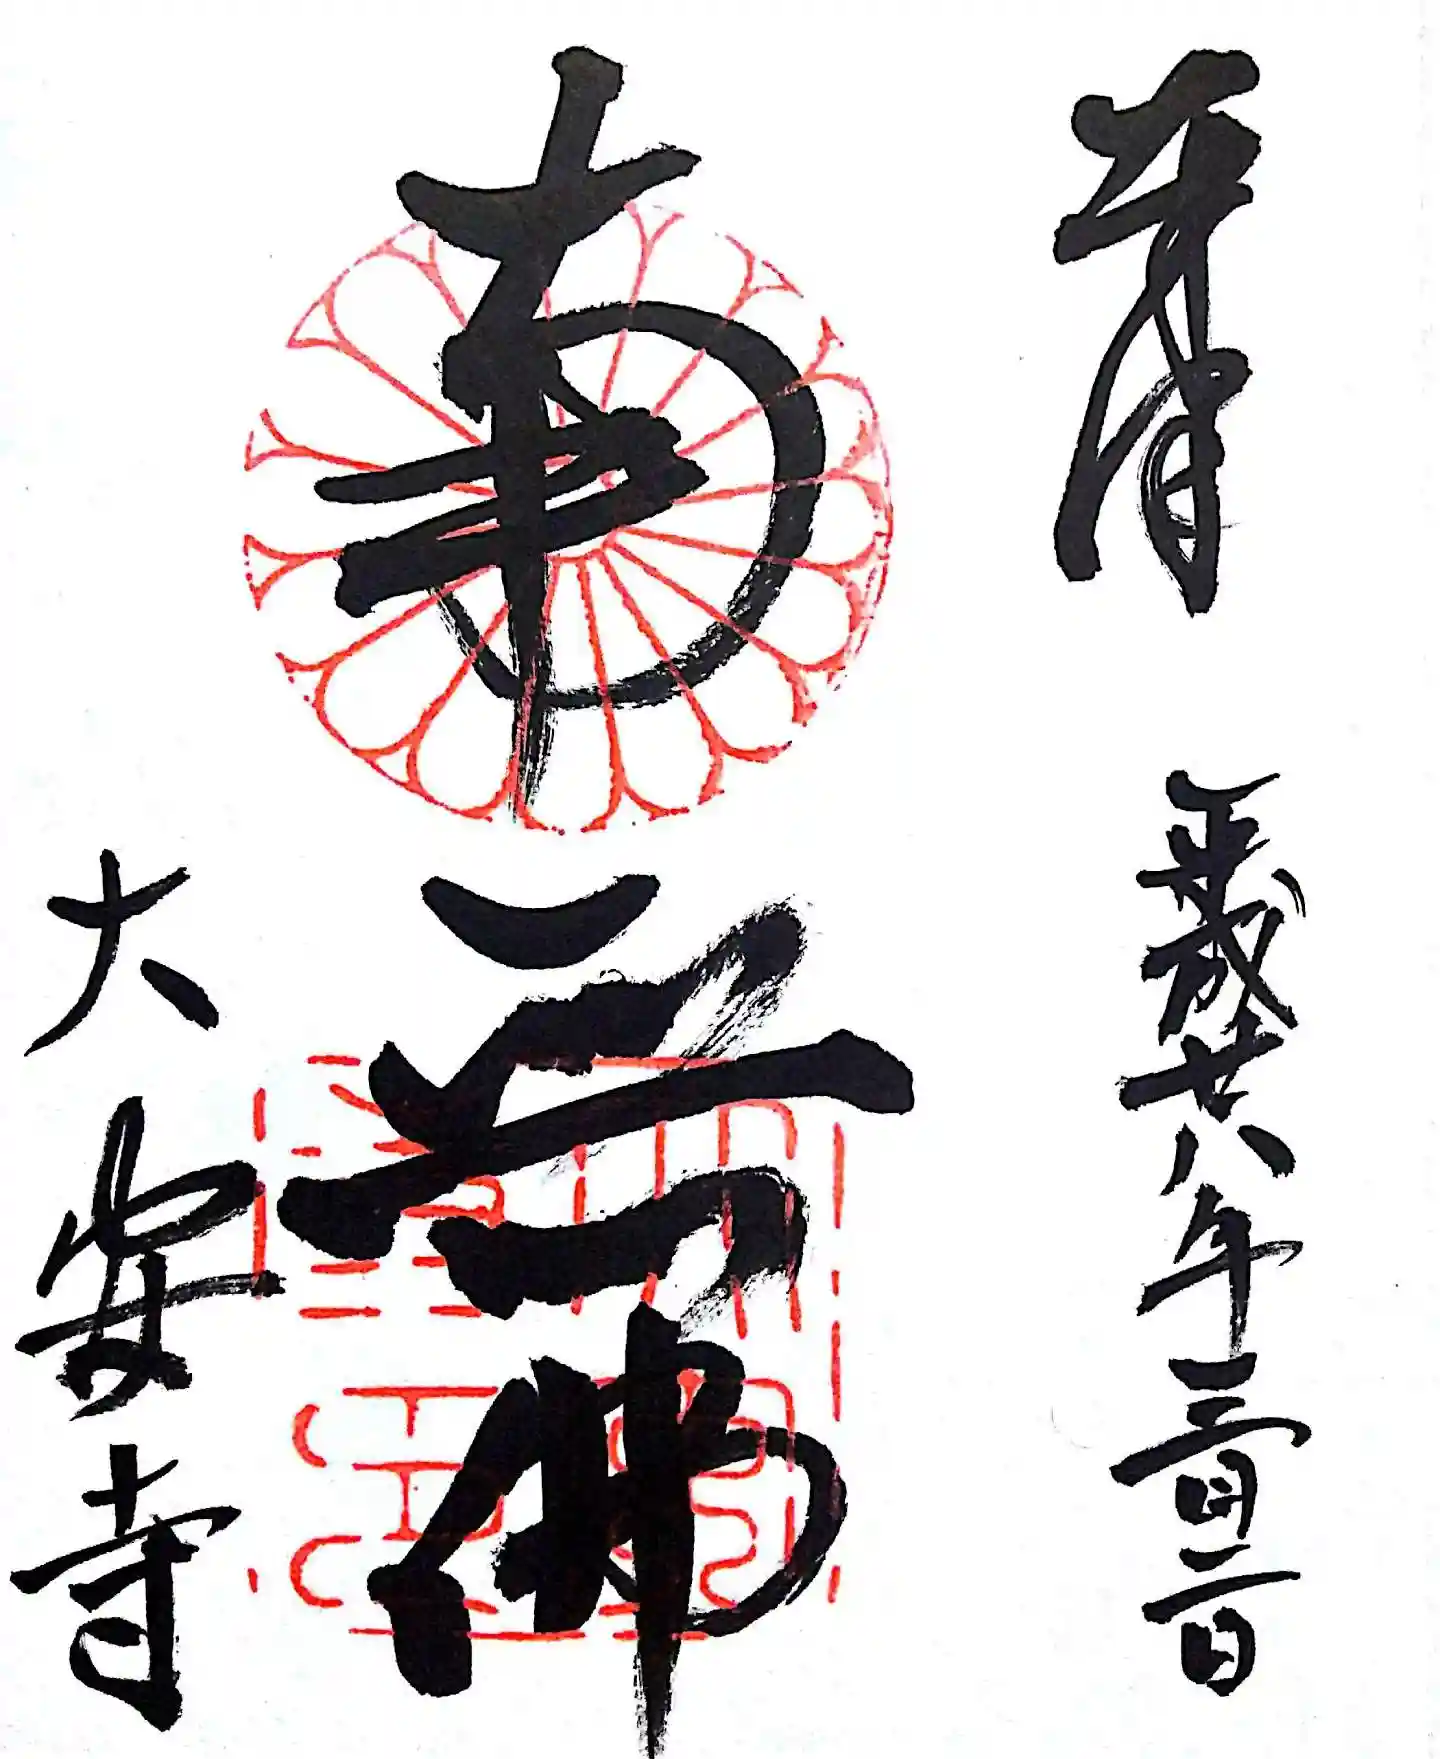 奉拝 平成廿八年三月二日
南無佛
大安寺